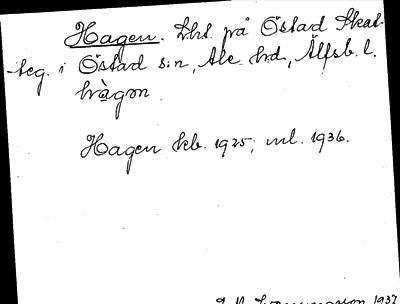 Hagen. Lht. på Östad Skat-
teg. i Östad s:n, Ale hd, Älfsb. l.
hàgɷn
Hagen kb. 1925; ml. 1936.
1937